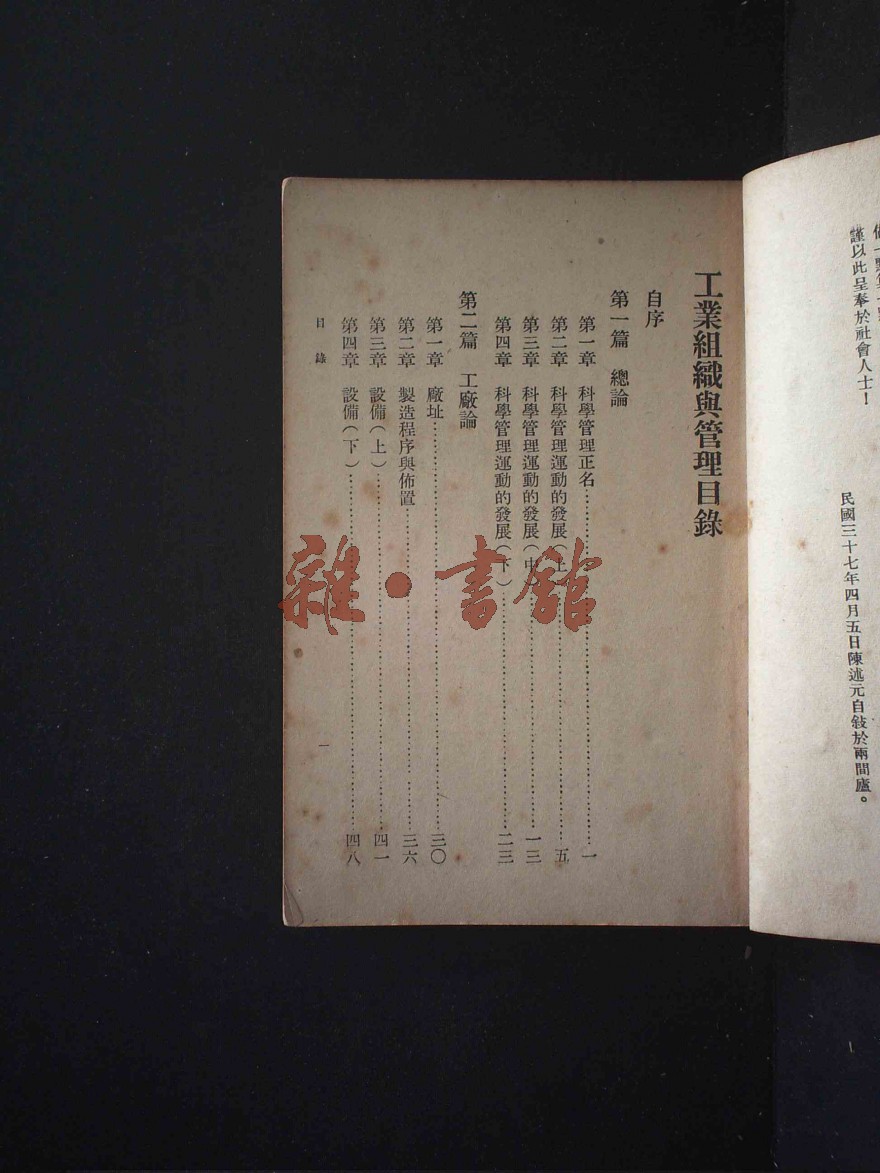 謹以此呈奉於社會人士！
民國三十七年四月五日陳述元自敍於兩間廬。
工業組織與管理目錄
自序
第一篇　總論
第一章　科學管理正名……一
第二章　科學管理運動的發展（上）……五
第三章　科學管理運動的發展（中）……一三
第四章　科學管理運動的發展（下）……二三
第二篇　工廠論
第一章　廠址……三〇
第二章　製造程序與佈置……三六
第三章　設備（上）……四一
第四章　設備（下）……四八
目錄
一
雜·書館